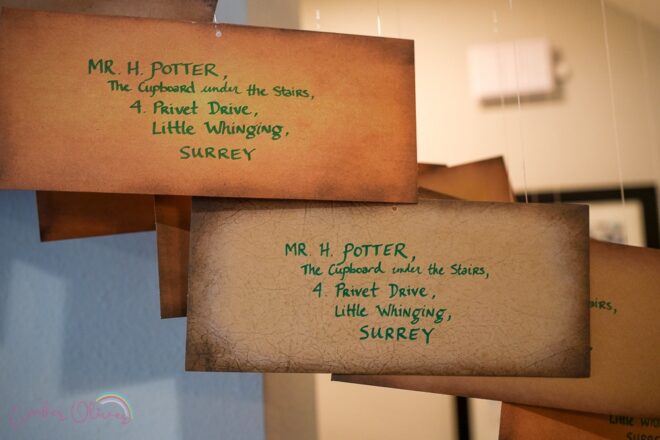 MR. H. POTTER,
The Cupboard under the Stairs,
4. Privet Drive,
Little Whinging,
SURREY
MR. H. POTTER,
The Cupboard under the Stairs,
4. Privet Drive,
Little Whinging,
SURREY